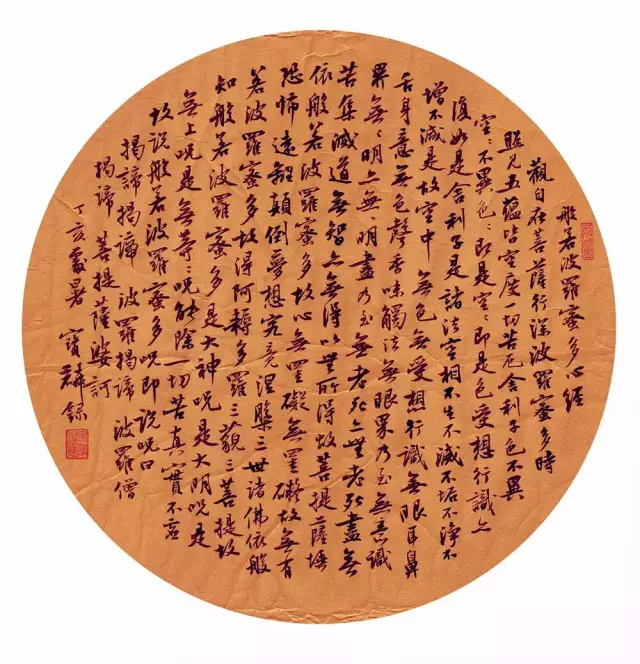 般若波羅蜜多心經
觀自在菩薩行深波羅蜜多時
照見五蘊皆空度一切苦厄舍利子色不異
空〻不異色〻即是空〻即是色受想行識亦
復如是舍利子是諸法空相不生不滅不垢不淨不
增不減是故空中無色無受想行識無眼耳鼻
舌身意無色聲香味觸法無眼界乃至無意識
界無〻明亦無明盡乃至無老死亦無老死盡無
苦集滅道無智亦無得以無所得故菩提薩埵
依般若波羅蜜多故心無罣礙無罣礙故無有
恐怖遠離顛倒夢想究竟涅槃三世諸佛依般
若波羅蜜多故得阿耨多羅三藐三菩提故
知般若波羅蜜多是大神呪是大明呪是
無上呪是無等〻呪能除一切苦真實不虛
故說般若波羅蜜多呪即說呪曰
揭諦揭諦 波羅揭諦 波羅僧
揭諦 菩提薩婆訶
丁亥處暑 寶麟錄